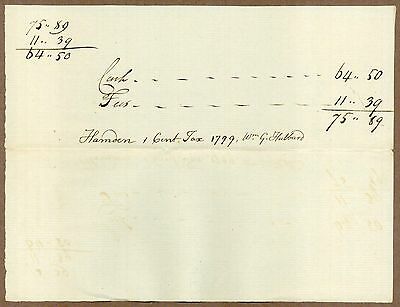 75 " 89
11 " 39
64 " 50
Cash - - - - - - - 64 " 50
Fees - - - - - - - 11 " 39
75 " 89
Hamden 1 Cent Tax 1799, Wm G. Hubbard